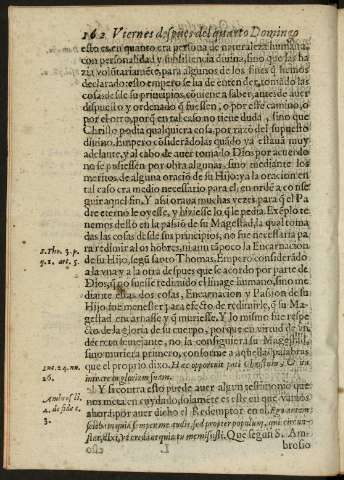 162 Viernes despues del quarto Domingo
esto es en quanto era persona de naturaleza humana,
con personalidad y subsistencia divina, sino que las ha
zia voluntariamēte, para algunos de los fines q̄ hemos
declarado: esto empero se ha de entender, tomādo las
cosas desde su principio: conviene a saber, antes de auer
dispuesto y ordenado q̄ fuessen, o por este camino, o
por el otro, porq̄ en tal caso no tiene duda, sino que
Christo podia qualquiera cosa, por razō del supuesto
divino. Empero cōsiderādolas quādo ya estaua muy
adelante, y al cabo de auer tomado Dios por acuerdo
no se pudiessen por obra algunas, sino mediante los
meritos de alguna oraciō de su Hijo: ya la oracion en
tal caso era medio necessario para el, en ordē a conse
guir aquel fin. Y assi oraua muchas vezes para q̄ el Pa
dre eterno le oyesse, y hiziesse lo q̄ le pedia. Exēplo te
nemos desto en la passiō de su Magestad, la qual toma
das las cosas desde sus principios, no fue necessaria pa
ra redimir al los hōbres, ni aun tāpoco la Encarnacion
de su Hijo, segū santo Thomas, Empero considerādo
a la vna y a la otra despues que se acordo por parte de
Dios, q̄ no fuesse redimido el linage humano, sino me
diante estas dos cosas, Encarnacion y Passion de su
Hijo fue menester para efecto de redimirle, q̄ su Ma
gestad encarnasse y q̄ muriesse. Y lo mismo fue respe
cto de la gloria de su cuerpo, porque en virtud de vn
decreto semejante, no la consiguiera su Magestad,
sino muriera primero, conforme a aquellas palabras
que el proprio dixo. Hæc oportuit pati Christum, & in
intrare in gloriam suam.
Y si contra esto puede auer algun testimonio que
nos meta en cuydado, solamēte es este en que vamos
ahora, por auer dicho el Redemptor en el. Ego autem
sciebam quia semper me audis, sed propter populum, qui circun
stat, dixi, vt credant quia tu me misisti. Que segun S. Am-
brosio
S. Tho. 3. p.
q. 1. art. 5.
Luc. 24. nu.
26.
Ambros. li.
de fide c.
3.
L